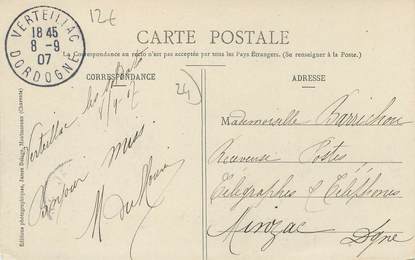 12€
VERTEILLAC
18 45
8 - 9
07
DORDOGNE
CARTE POSTALE
La Correspondance au recto n'est pas acceptée par tous les Pays Étrangers. (Se renseigner à la Poste.)
CORRESPONDANCE
ADRESSE
Éditions photographiques, James Delage, Montmoreau (Charente)
24)
Verteillac les
Bonjour
Mademoiselle Barrichou
Receveuse Postes,
Télégraphes & Téléphones
Minzac
Dgne